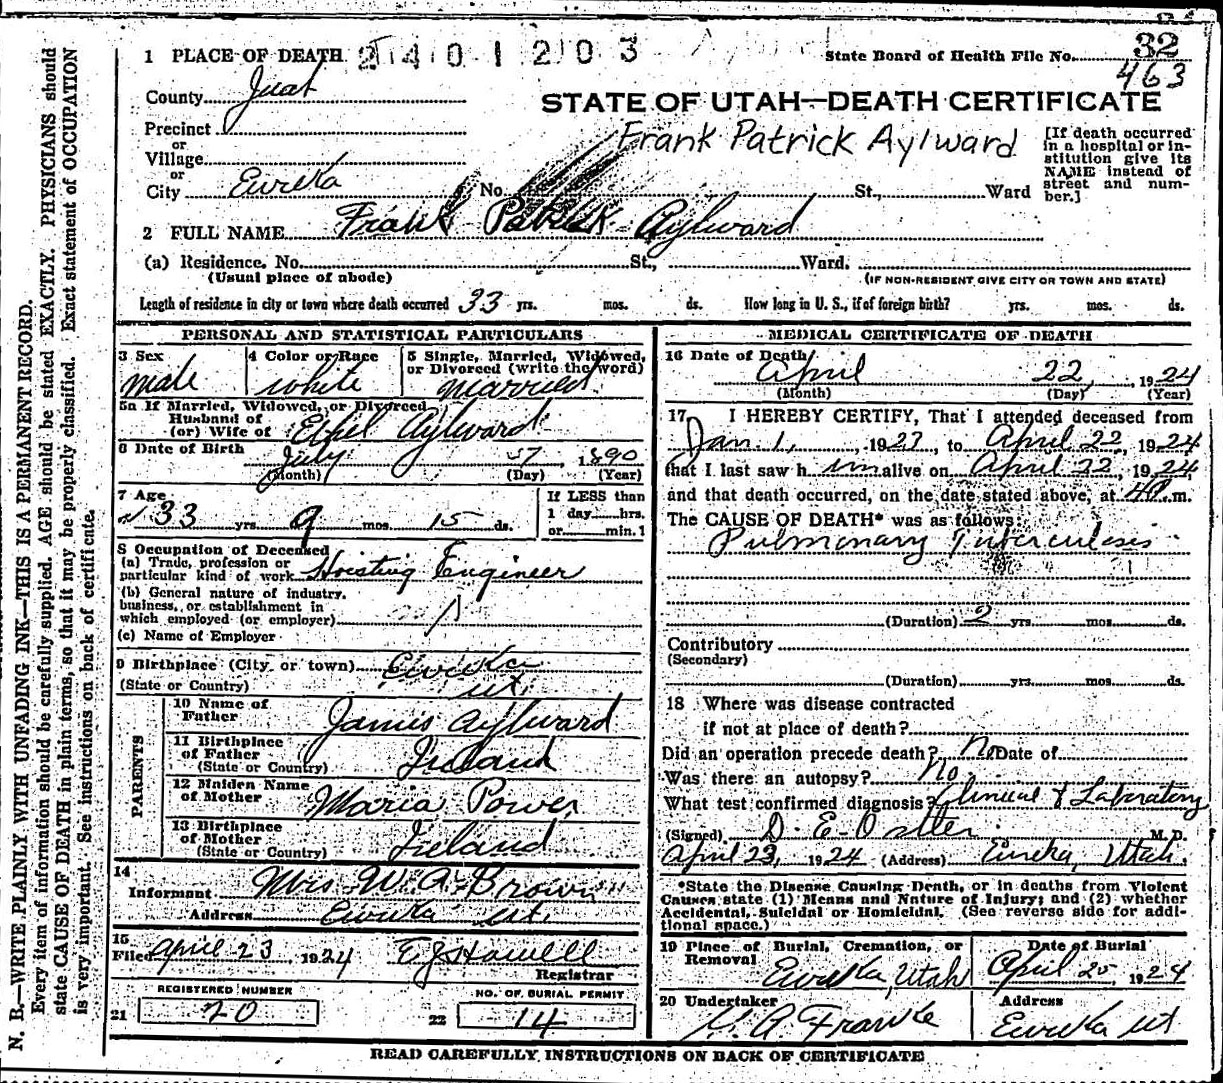 32
1 PLACE OF DEATH 2401203 State Board of Health File No. 463
County Juab
STATE OF UTAH—DEATH CERTIFICATE
Precinct
or
Village
Frank Patrick Aylward
[If death occurred in a hospital or institution give its NAME instead of street and number.]
or
City Eureka No. St., Ward
2 FULL NAME Frank Patrick Aylward
(a) Residence. No. St., Ward.
(Usual place of abode) (IF NON-RESIDENT GIVE CITY OR TOWN AND STATE)
Length of residence in city or town where death occurred 33 yrs. mos. ds. How long in U. S., if of foreign birth? yrs. mos. ds.
PERSONAL AND STATISTICAL PARTICULARS
3 Sex
male
4 Color or Race
white
5 Single, Married, Widowed,
or Divorced (write the word)
married
5a If Married, Widowed, or Divorced
Husband of
(or) Wife of Ethel Aylward
6 Date of Birth
July 7 1890
(Month) (Day) (Year)
7 Age
33 yrs. 9 mos. 15 ds.
If LESS than
1 day hrs.
or min.
8 Occupation of Deceased
(a) Trade, profession or
particular kind of work Hoisting Engineer
(b) General nature of industry,
business, or establishment in
which employed (or employer)
(c) Name of Employer
9 Birthplace (City or town) Eureka
(State or Country) ut.
PARENTS
10 Name of
Father James Aylward
11 Birthplace
of Father
(State or Country) Ireland
12 Maiden Name
of Mother Maria Power
13 Birthplace
of Mother
(State or Country) Ireland
14
Informant Mrs W. A. Brown
Address Eureka ut.
15
Filed April 23 1924 E J Howell
Registrar
REGISTERED NUMBER
21 20
NO. OF BURIAL PERMIT
22 14
MEDICAL CERTIFICATE OF DEATH
16 Date of Death
April 22, 1924
(Month) (Day) (Year)
17 I HEREBY CERTIFY, That I attended deceased from
Jan. 1, 1927, to April 22, 1924
that I last saw him alive on April 22, 1924,
and that death occurred, on the date stated above, at 4P.m.
The CAUSE OF DEATH* was as follows:
Pulmonary Tuberculosis
(Duration) 2 yrs. mos. ds.
Contributory
(Secondary)
(Duration) yrs. mos. ds.
18 Where was disease contracted
if not at place of death?
Did an operation precede death? No Date of
Was there an autopsy? No
What test confirmed diagnosis? Clinical & Laboratory
(Signed) D. E. Ostler M. D.
April 23, 1924 (Address) Eureka, Utah.
*State the Disease Causing Death, or in deaths from Violent
Causes state (1) Means and Nature of Injury; and (2) whether
Accidental, Suicidal or Homicidal. (See reverse side for addi-
tional space.)
19 Place of Burial, Cremation, or
Removal
Eureka, Utah
Date of Burial
April 25 1924
20 Undertaker
A. Franke
Address
Eureka ut
READ CAREFULLY INSTRUCTIONS ON BACK OF CERTIFICATE
N. B.—WRITE PLAINLY WITH UNFADING INK—THIS IS A PERMANENT RECORD.
Every item of information should be carefully supplied. AGE should be stated EXACTLY. PHYSICIANS should
state CAUSE OF DEATH in plain terms, so that it may be properly classified. Exact statement of OCCUPATION
is very important. See instructions on back of certificate.